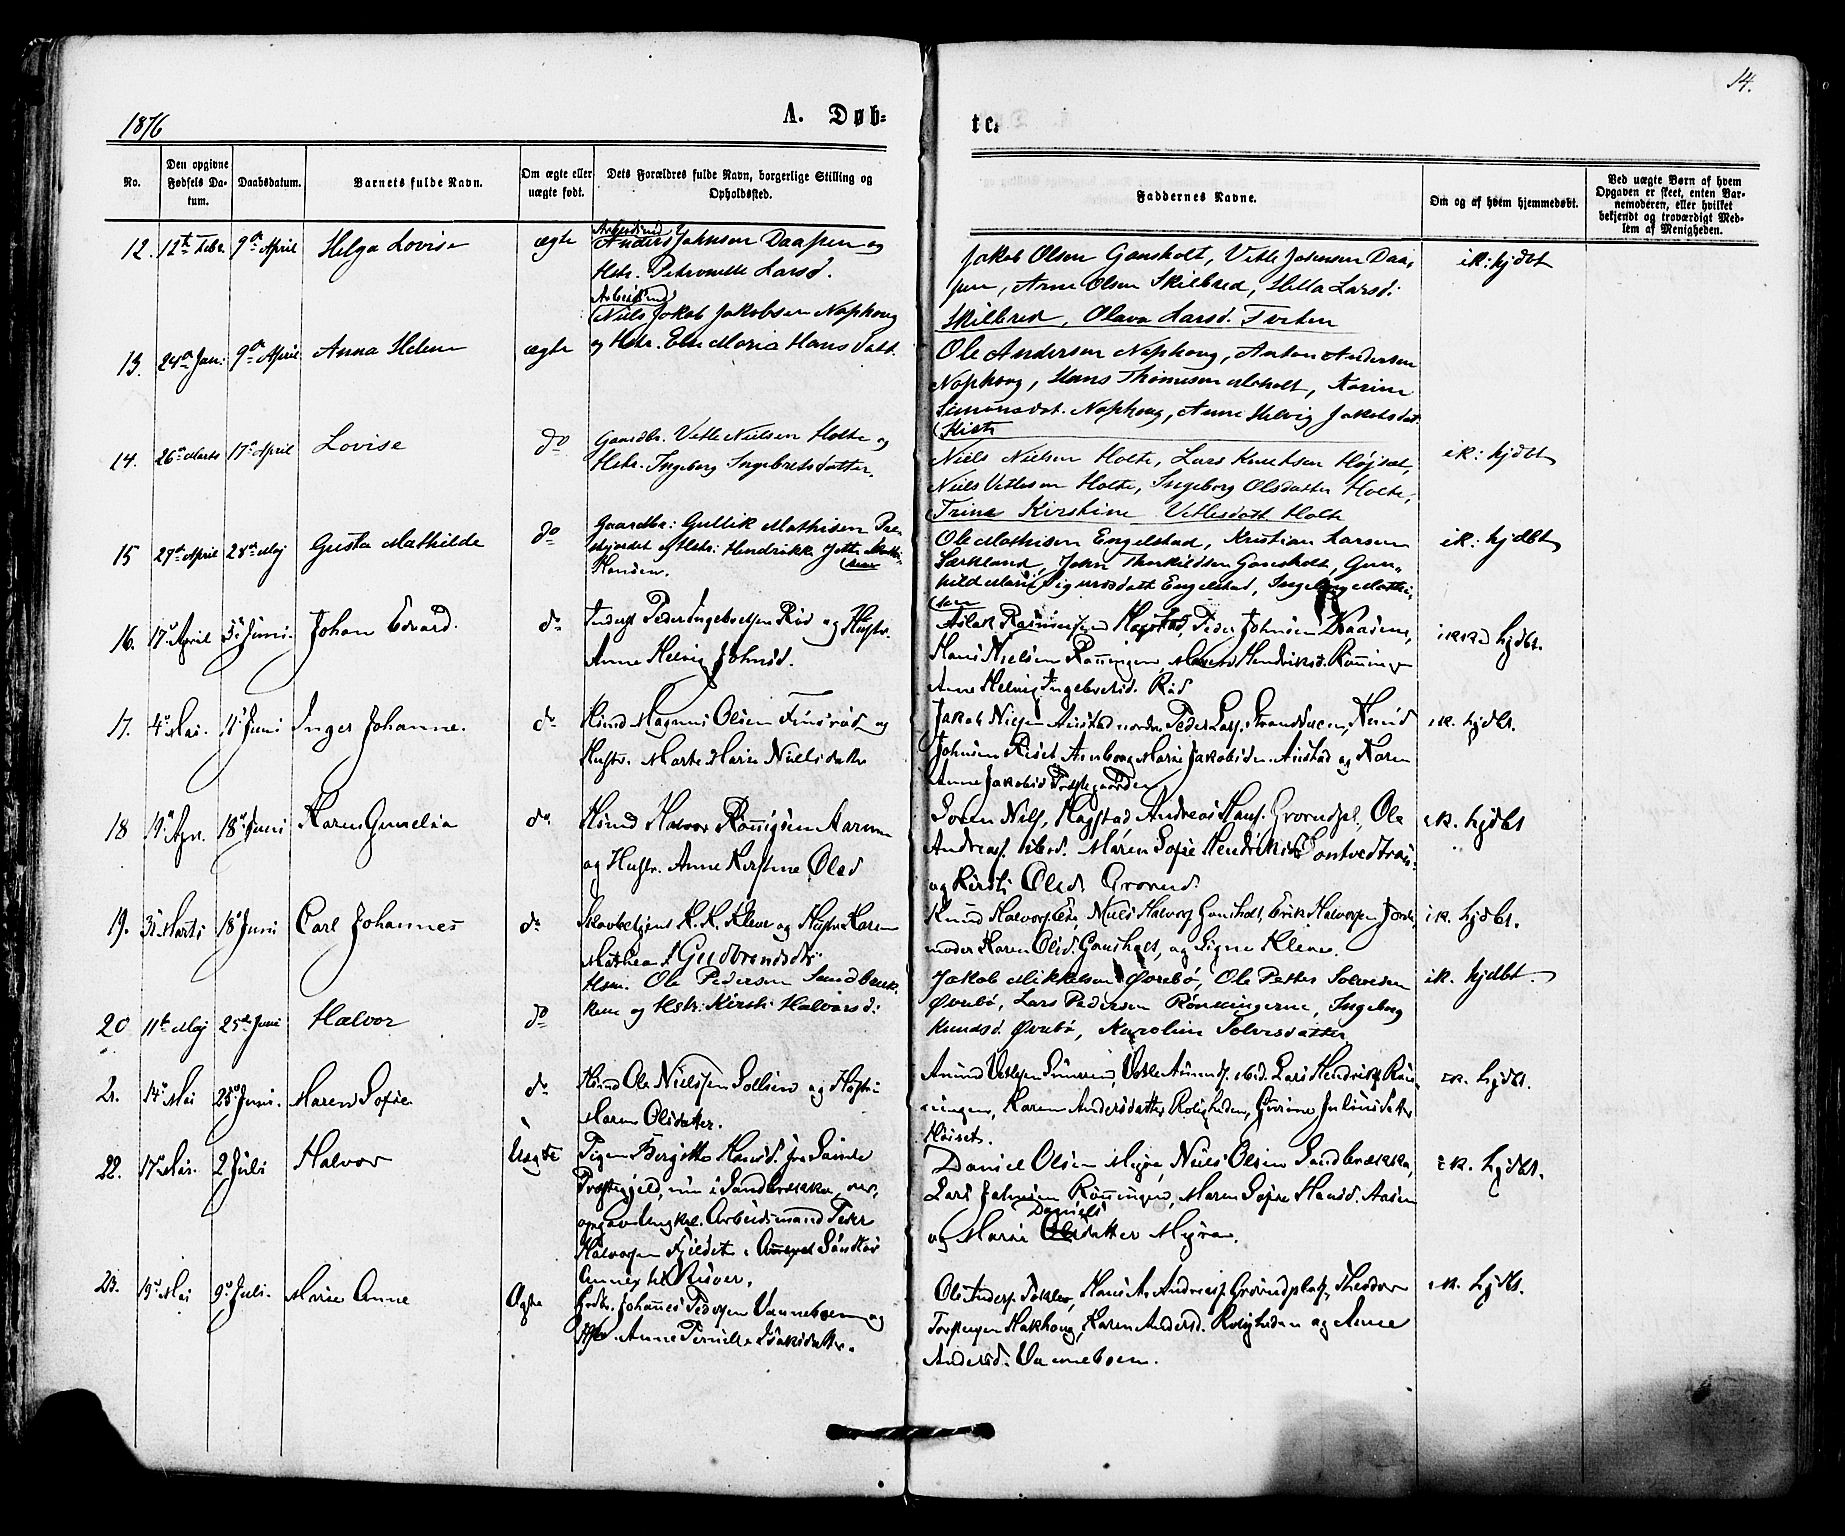 14.
1876
A. Døb-
te.
No.
Den opgivne Fødsels Datum.
Daabsdatum.
Barnets fulde Navn.
Om ægte eller uægte født.
Dets Forældres fulde Navn, borgerlige Stilling og Opholdssted.
Faddernes Navne.
Om og af hvem hjemmedøbt.
Ved uægte Børn af hvem Opgaven er skeet, enten Barnemoderen, eller hvilket bekjendt og troværdigt Medlem af Menigheden.
12. 12te Febr. 9de April Helga Lovise ægte Arbeidsmd
Anders Johnsen Daapen og
Hstr. Petronelle Larsd.
Jakob Olsen Gonsholt, Vetle Johnsen Daa-
pen, Arne Olsen Skilbred, Hella Larsd:
Skilbred, Olava Larsd. Tveten
ik: hjdbt
13. 24de Jan: 9de April Anna Helene ægte Arbeidsmd
Niels Jakob Jakobsen Naphoug
og Hstr. Else Maria Hansdatt.
Ole Andersen Naphoug, Anton Andersen
Naphoug, Hans Thomesen Moholt, Karine
Simonsdat. Naphoug, Anne Helvig Jakobsdat.
14. 26de Marts 17de April Lovise do Gaardbr. Vetle Nielsen Holte og
Hstr. Ingeborg Ingebretsdatter.
Niels Nielsen Holte, Lars Knudsen Højset,
Niels Vetlesen Holte, Ingeborg Olsdatter Holte,
Trine Kirstine Vetlesdatt Holte
ik: hjdbt
15 27de April 28de Maj Gusta Mathilde do Gaardbr: Gullik Mathisen Præ-
stjordet og Hstr: Hendrikke Jette
Ole Mathisen Engelstad, Kristian Larsen
Lærkland, John Thorkildsen Gonsholt, Gun-
hild Marie Sigurdsdatt Engelstad, Ingeborg Mathi-
sen
ik: hjdbt
16. 17de April 5te Juni Johan Edvard. do Inderst Peder Ingebretsen Rød og Hustr.
Anne Helvig Johnsd.
Aslak Rasmussen Hagstad, Peder Johnsen Kaasene,
Hans Nielsen Rønningen, Maren Hendriksd. Rønningen
Anne Helvig Ingebretsd. Rød
ikke hjdbt.
17. 4de Mai. 11te Juni Inger Johanne. do Hsmd Magnus Olsen Finsrød og
Hustr. Marte Marie Nielsdatter
Jakob Niesen Austad nordre, Peder Lars. Stranddalen,
Johnsen Riset, Anborg Marie Jakobsdtr. Austad og Karen
Anne Jakobsd Præstegaarden
ik. hjdbt.
18 19de Apr. 18de Juni Karen Gunelia do. Hsmd Halvor
og Hustr. Anne Kirstine Olsd
Søren Nils. Hagstad, Andreas Hans. Grorud, Ole
Andreas. ibid. Maren Sofie Hendriksd
og Kirsti Olsd. Grorud.
ik. hjdbt
19. 31te Marts 18de Juni Carl Johannes do Skovbetjent K. K. Kleve og Hustr Karen
Mathea Gudbrandsdtr
Knud Halvors Eie, Niels Halvors Gonsholt, Erik Halvorsen Jord-
moder Karen Olsd. Gonsholt, og Signe Kleve.
ik. hjdbt.
20 11te Maj 25de Juni Halvor do Hsm. Ole Pedersen Sandbræk-
kene og Hstr: Kirsti Halvorsd:
Jakob Mikkelsen Øvrebø, Ole Petter Solvesen
Øvrebø, Lars Pedersen Rønningerne, Ingeborg
Knudsd. Øvrebø, Karoline Solvesdatter
ik. hjdbt.
21. 14de Mai 25de Juni. Maren Sofie do Hsmd Ole Nielssen Sollien og Hustr:
Maren Olsdatter.
Amund Vetlesen, Vetle Amunds. ibid. Lars Hendriks. Røn-
ningen, Karen Andersdatter Roligheden, Gurine Juliusdatter
Høiset.
ik. hjdbt.
22. 17de Mai. 2 Juli Halvor Uægte Pigen Bergitte Hansd. fra Sannde
Præstegjeld, nu i Sandbrække,
opgav Ungkarl. Arbeidsmand Peder
Halvorsen Fjeldet i Søndeløv
Annex til Risøer.
Daniel Olsen Myra, Niels Olsen Sandbrække,
Lars Johnsen Rønningen, Maren Sofie Hansd. Aasen
og Marie Daniels
datter Myra.
ik. hjdbt.
23. 19de Mai 9de Juli. Marie Anne Ægte Grdbr. Johannes Pedersen Vanneboen og
Hstr. Anne Pernille Isaksdatter.
Ole Anders. Økter, Hans A. Andreas. Grorudplads, Theodor
Torjersen Hakhoug, Karen Andersd. Roligheden og Anne
Andersd. Vanneboen.
ik. hjdbt.